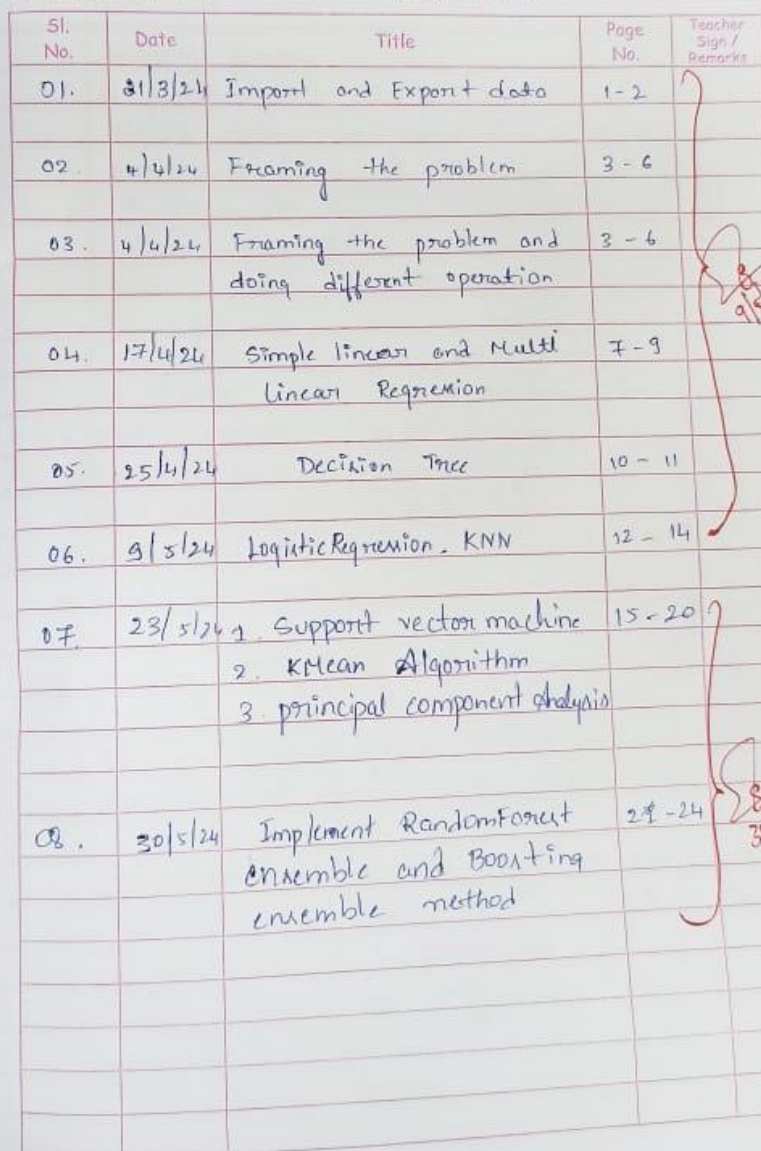 Sl. No. Date Title Page No. Teacher Sign / Remarks
01. 21/3/24 Import and Export data 1-2
02 4/4/24 Framing the problem 3 - 6
03. 4/4/24 Framing the problem and 3 - 6
doing different operation
04. 17/4/24 Simple linear and Multi 7 - 9
linear Regression
05. 25/4/24 Decision Tree 10 - 11
06. 9/5/24 Logistic Regression. KNN 12 - 14
07. 23/5/24 1. Support vector machine 15 - 20
2. KMean Algorithm
3. principal component Analysis
08. 30/5/24 Implement RandomForest 21 - 24
ensemble and Boosting
ensemble method